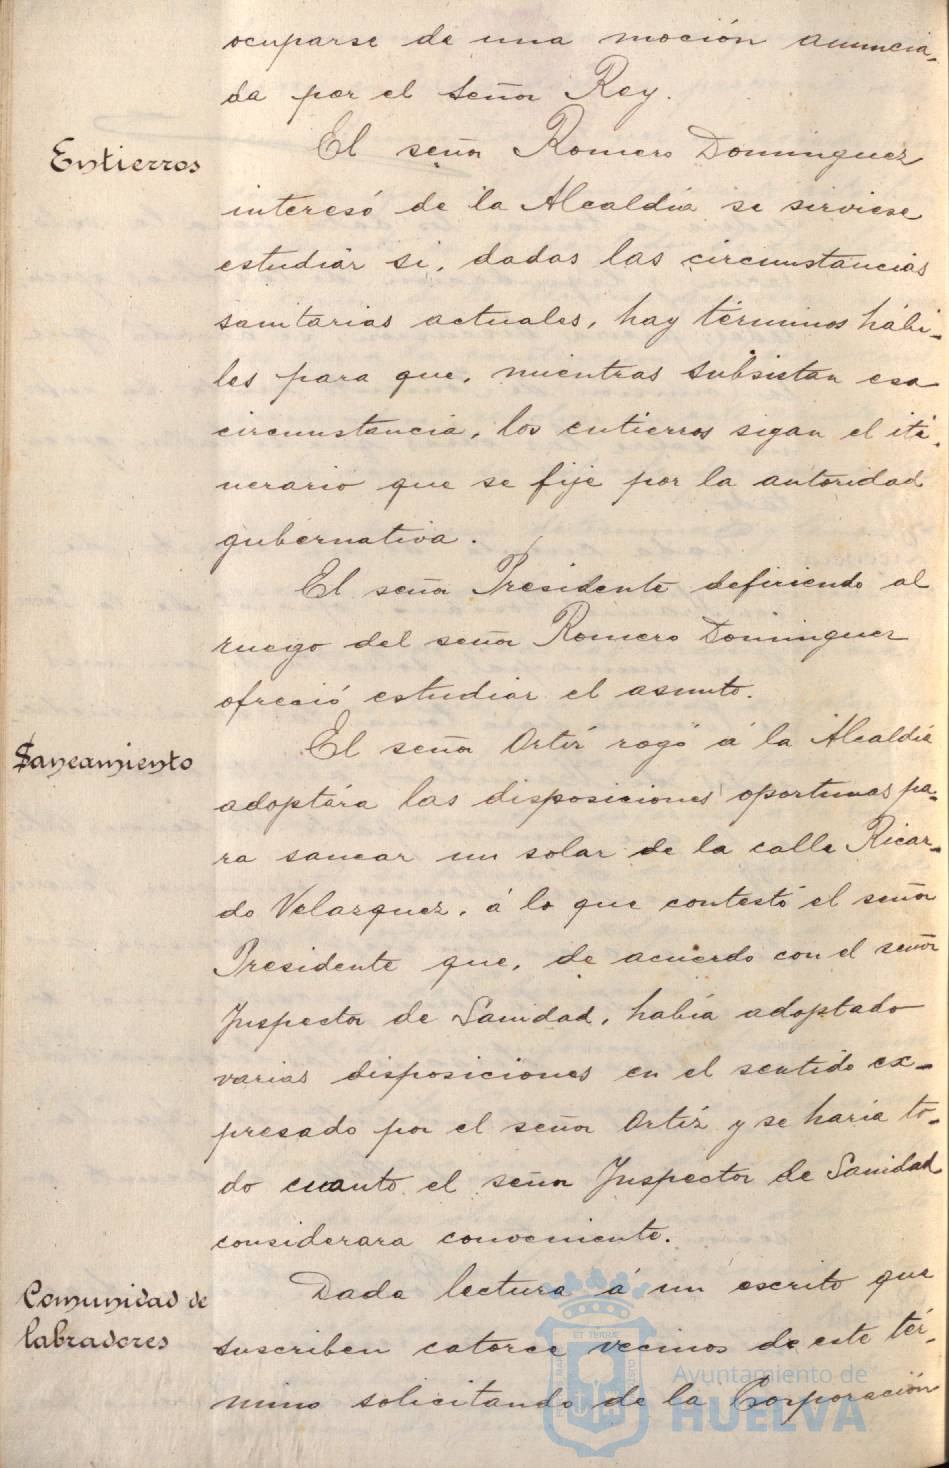 ocuparse de una moción anuncia-
da por el señor Rey.
Entierros
El señor Romero Dominguez
interesó de la Alcaldía se sirviese
estudiar si, dadas las circunstancias
sanitarias actuales, hay términos hábi-
les para que, mientras subsistan esa
circunstancia, los entierros sigan el iti-
nerario que se fije por la autoridad
gubernativa.
El señor Presidente defiriendo al
ruego del señor Romero Dominguez
ofreció estudiar el asunto.
Saneamiento
El señor Ortíz rogó á la Alcaldía
adoptára las disposiciones oportunas pa-
ra sanear un solar de la calle Ricar-
do Velazquez, á lo que contestó el señor
Presidente que, de acuerdo con el señor
Inspector de Sanidad, había adoptado
varias disposiciones en el sentido ex-
presado por el señor Ortíz y se haria to-
do cuanto el señor Inspector de Sanidad
considerara conveniente.
Comunidad de
labradores
Dada lectura á un escrito que
suscriben catorce vecinos de este tér-
mino solicitando de la Corporación
Ayuntamiento de
HUELVA